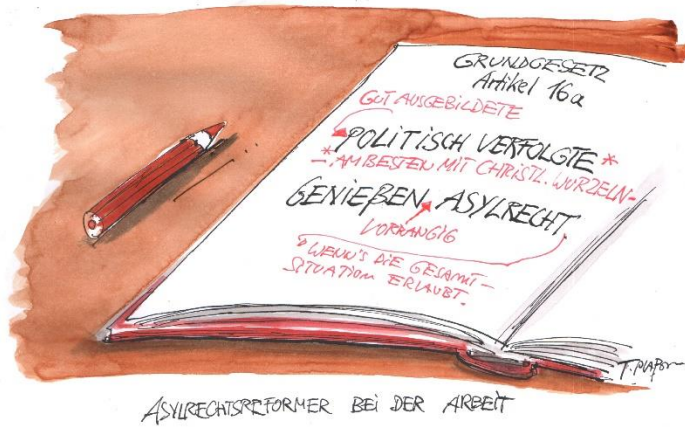 GRUNDGESETZ
Artikel 16a
GUT AUSGEBILDETE
*POLITISCH VERFOLGTE*
- AM BESTEN MIT CHRISTL. WURZELN-
GENIEßEN ASYLRECHT
VORRANGIG
*WENN'S DIE GESAMT-
SITUATION ERLAUBT.
T. Plaßm
ASYLRECHTSREFORMER BEI DER ARBEIT